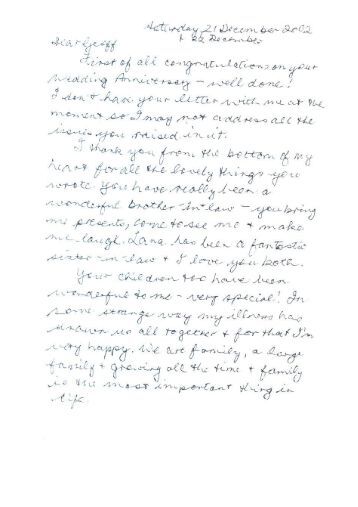 Saturday 21 December 2002
+ 22 December
Dear Geoff
First of all congratulations on your
wedding Anniversary - well done!
I don't have your letter with me at the
moment so I may not address all the
issues you raised in it.
I thank you from the bottom of my
heart for all the lovely things you
wrote. You have really been a
wonderful brother-in-law - you bring
me presents, come to see me + make
me laugh. Lana has been a fantastic
sister-in-law + I love you both.
Your children too have been
wonderful to me - very special! In
some strange way my illness has
drawn us all together + for that I'm
very happy. We are family, a large
family + growing all the time + family
is the most important thing in
life.